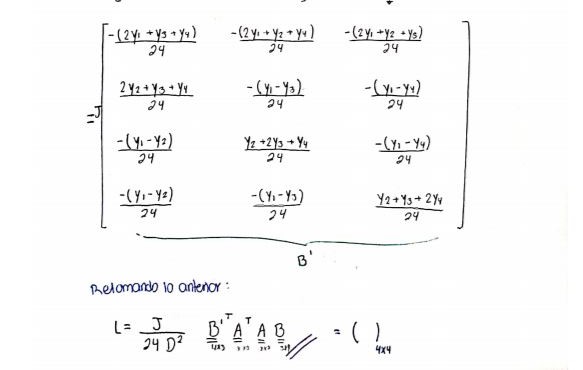 -(2y₁ + y₃ + y₄)/24 -(2y₁ + y₂ + y₄)/24 -(2y₁ + y₂ + y₃)/24
2y₂ + y₃ + y₄/24 -(y₁ - y₃)/24 -(y₁ - y₄)/24
= J
-(y₁ - y₂)/24 y₂ + 2y₃ + y₄/24 -(y₁ - y₄)/24
-(y₁ - y₂)/24 -(y₁ - y₃)/24 y₂ + y₃ + 2y₄/24
B'
Retomando lo anterior:
L = J/24 D² B'ᵀ Aᵀ A B = ( )₄ₓ₄